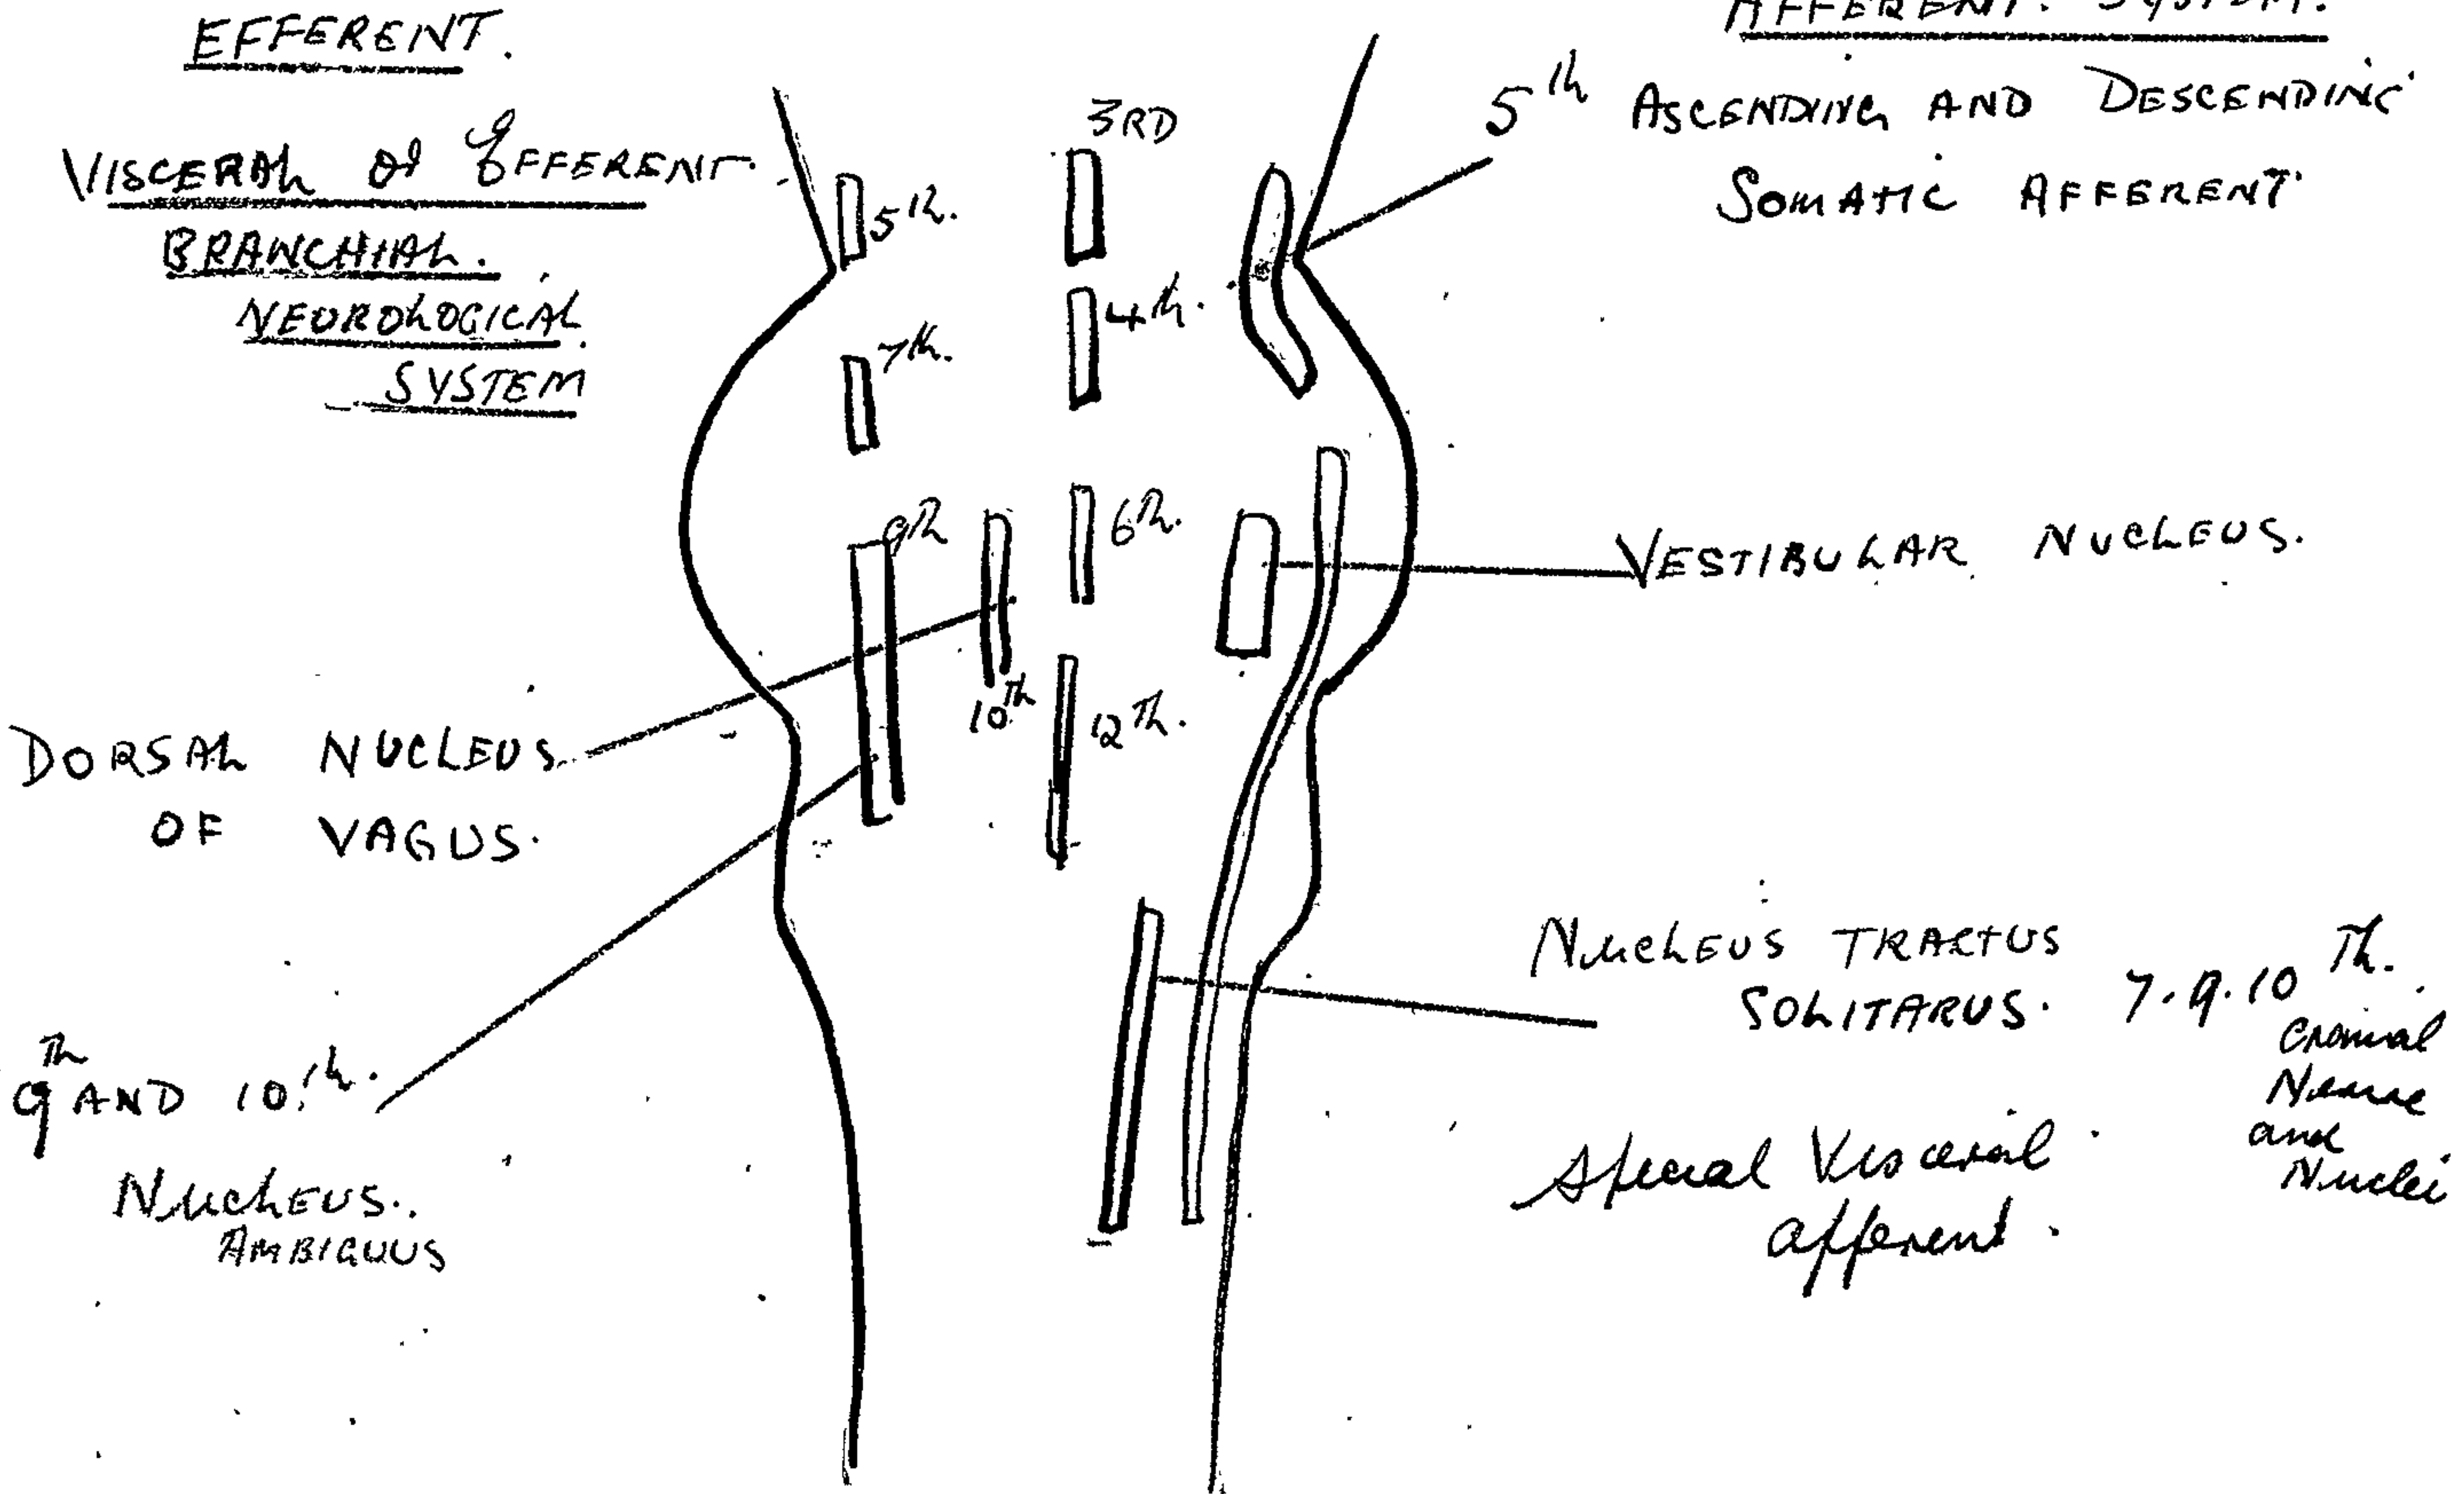 EFFERENT.
VISCERAL or EFFERENT.
BRANCHIAL.
NEUROLOGICAL
SYSTEM
AFFERENT. SYSTEM.
5th ASCENDING AND DESCENDING
SOMATIC AFFERENT
3RD
5th.
4th.
7th.
9th
6th.
10th
12th.
VESTIBULAR NUCLEUS.
DORSAL NUCLEUS
OF VAGUS.
9th AND 10th.
NUCLEUS.
AMBIGUUS
NUCLEUS TRACTUS
SOLITARUS. 7.9.10 Th.
Cranial
Nerve
and
Nuclei
Special Visceral
afferent.